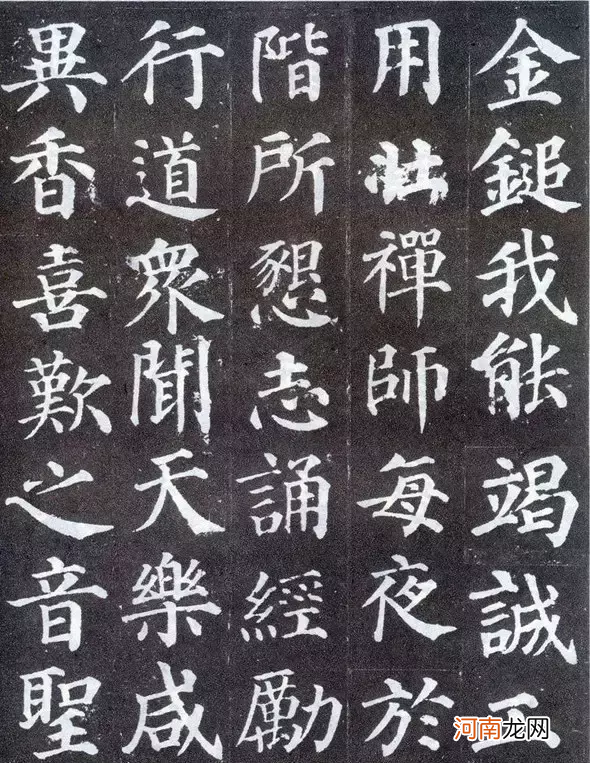 金鎚我能竭誠工
用壯禪師每夜於
階所懇志誦經勵
行道衆聞天樂咸
異香喜歎之音聖
河南龙网